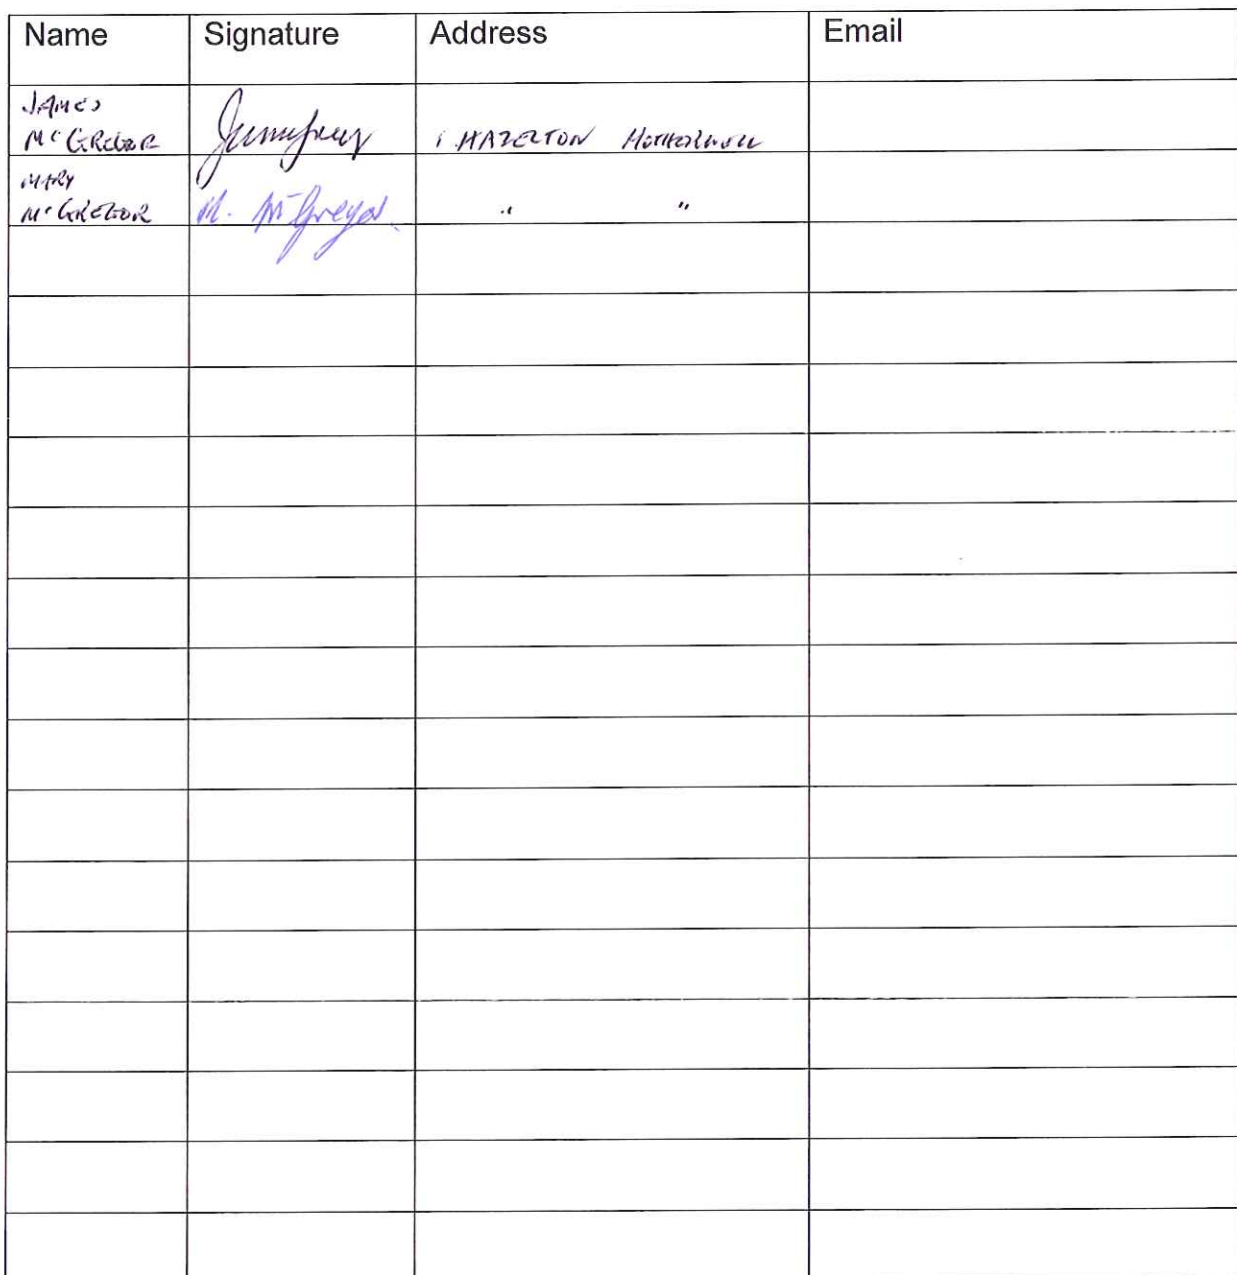 Name Signature Address Email
JAMES
McGREGOR 1 HAZELTON MOTHERWELL
MARY
McGREGOR M. McGregor " "